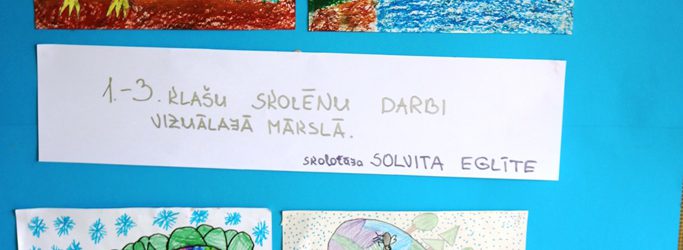 1.-3. KLAŠU SKOLĒNU DARBI
VIZUĀLAJĀ MĀKSLĀ.
skolotāja SOLVITA EGLĪTE